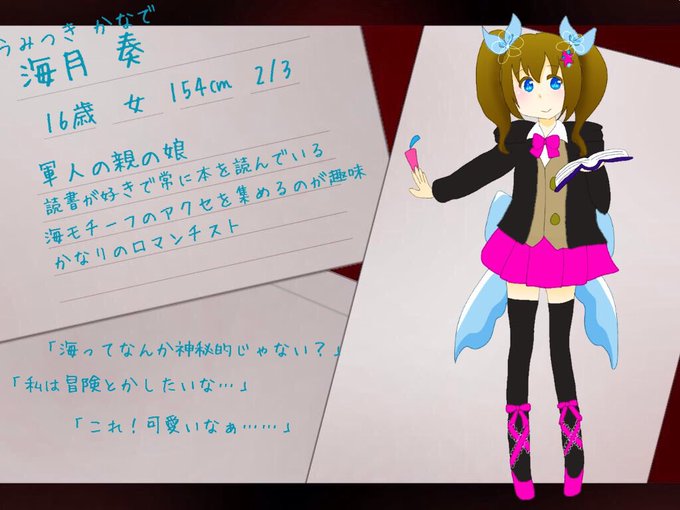 うみつき かなで
海月 奏
16歳 女 154cm 2/3
軍人の親の娘
読書が好きで常に本を読んでいる
海モチーフのアクセを集めるのが趣味
かなりのロマンチスト
「海ってなんか神秘的じゃない?」
「私は冒険とかしたいな…」
「これ!可愛いなぁ……」